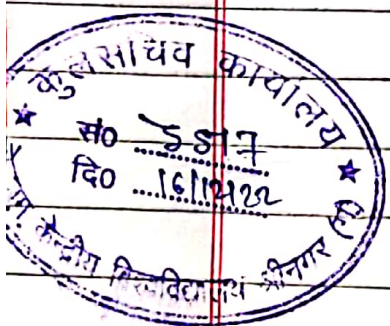 कुलसचिव कार्यालय
सं०
दि० 16/12/22
केन्द्रीय विश्वविद्यालय श्रीनगर